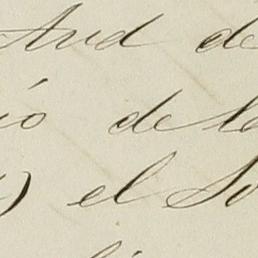 Aud de
ió de la
) el So